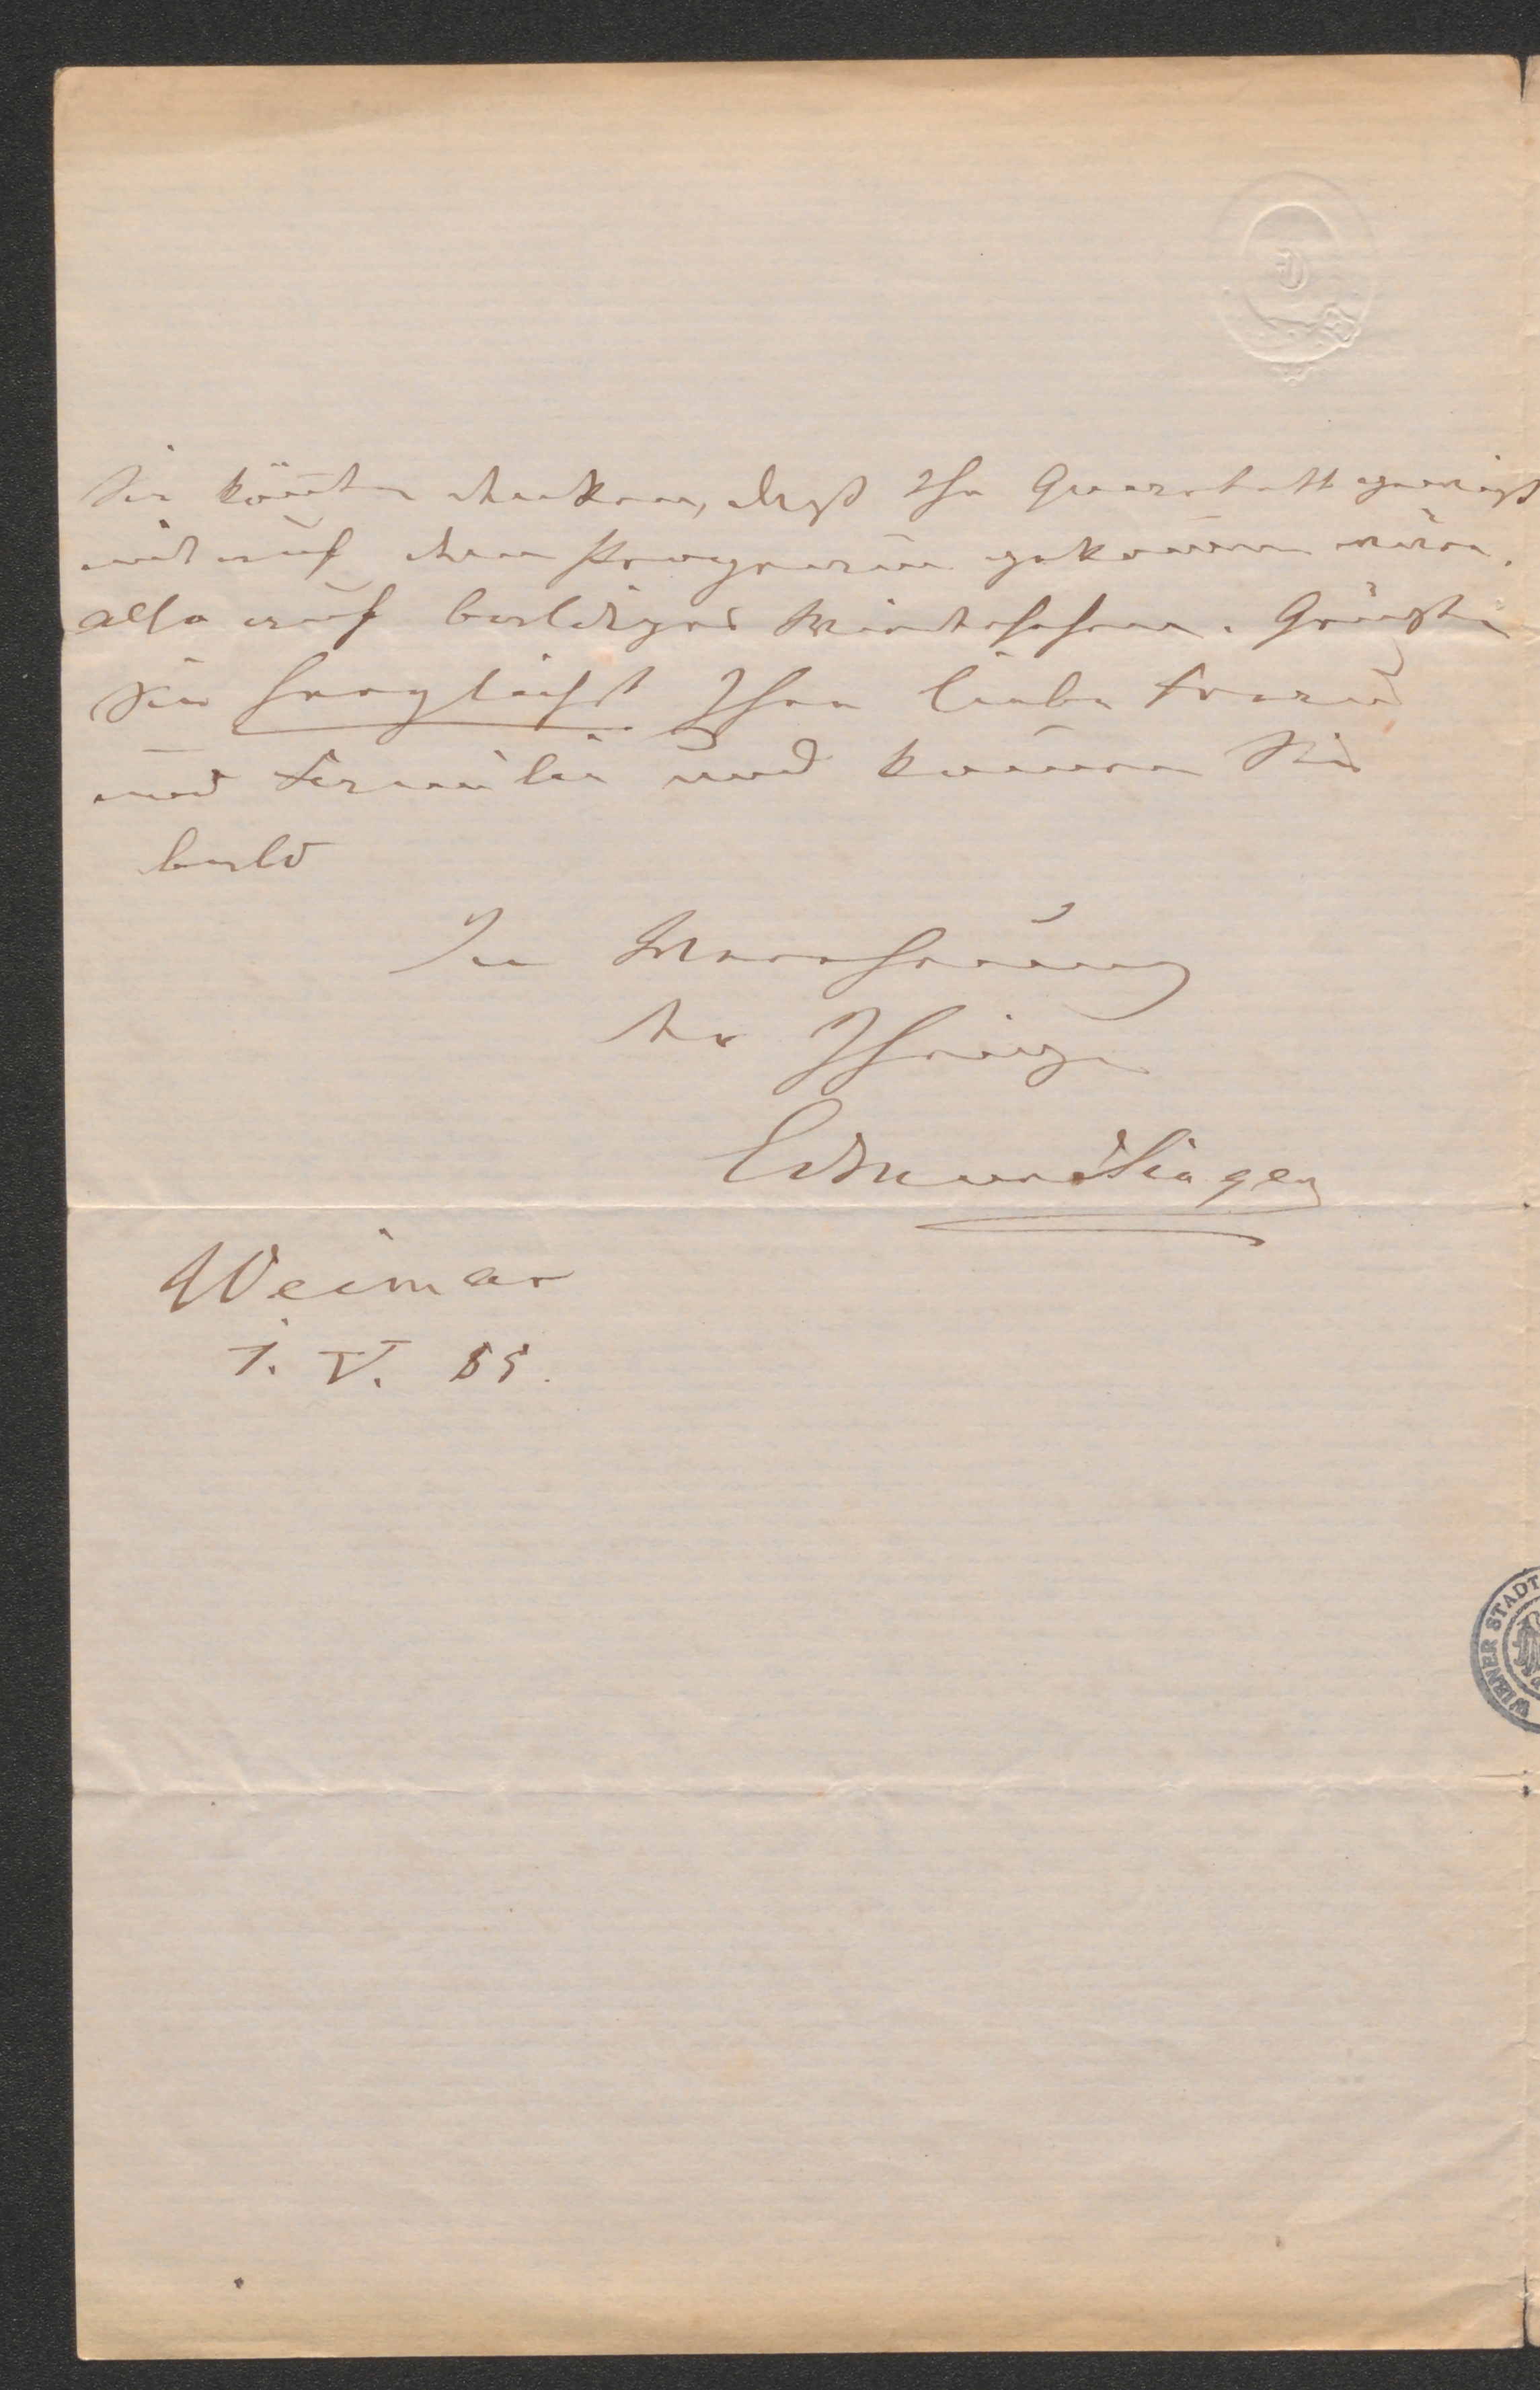 Sie könten denken, daß Ihr Quartett gewiß
mit auf dem Program gekom̄en wäre.
Also auf baldiges Wiedersehen. Grüßen
Sie herzlichst Ihre liebe Frau
und Familie und kom̄en Sie
bald
In Verehrung
der Ihrige
Edmund Singer
Weimar
1. V. 85.
WIENER STADT